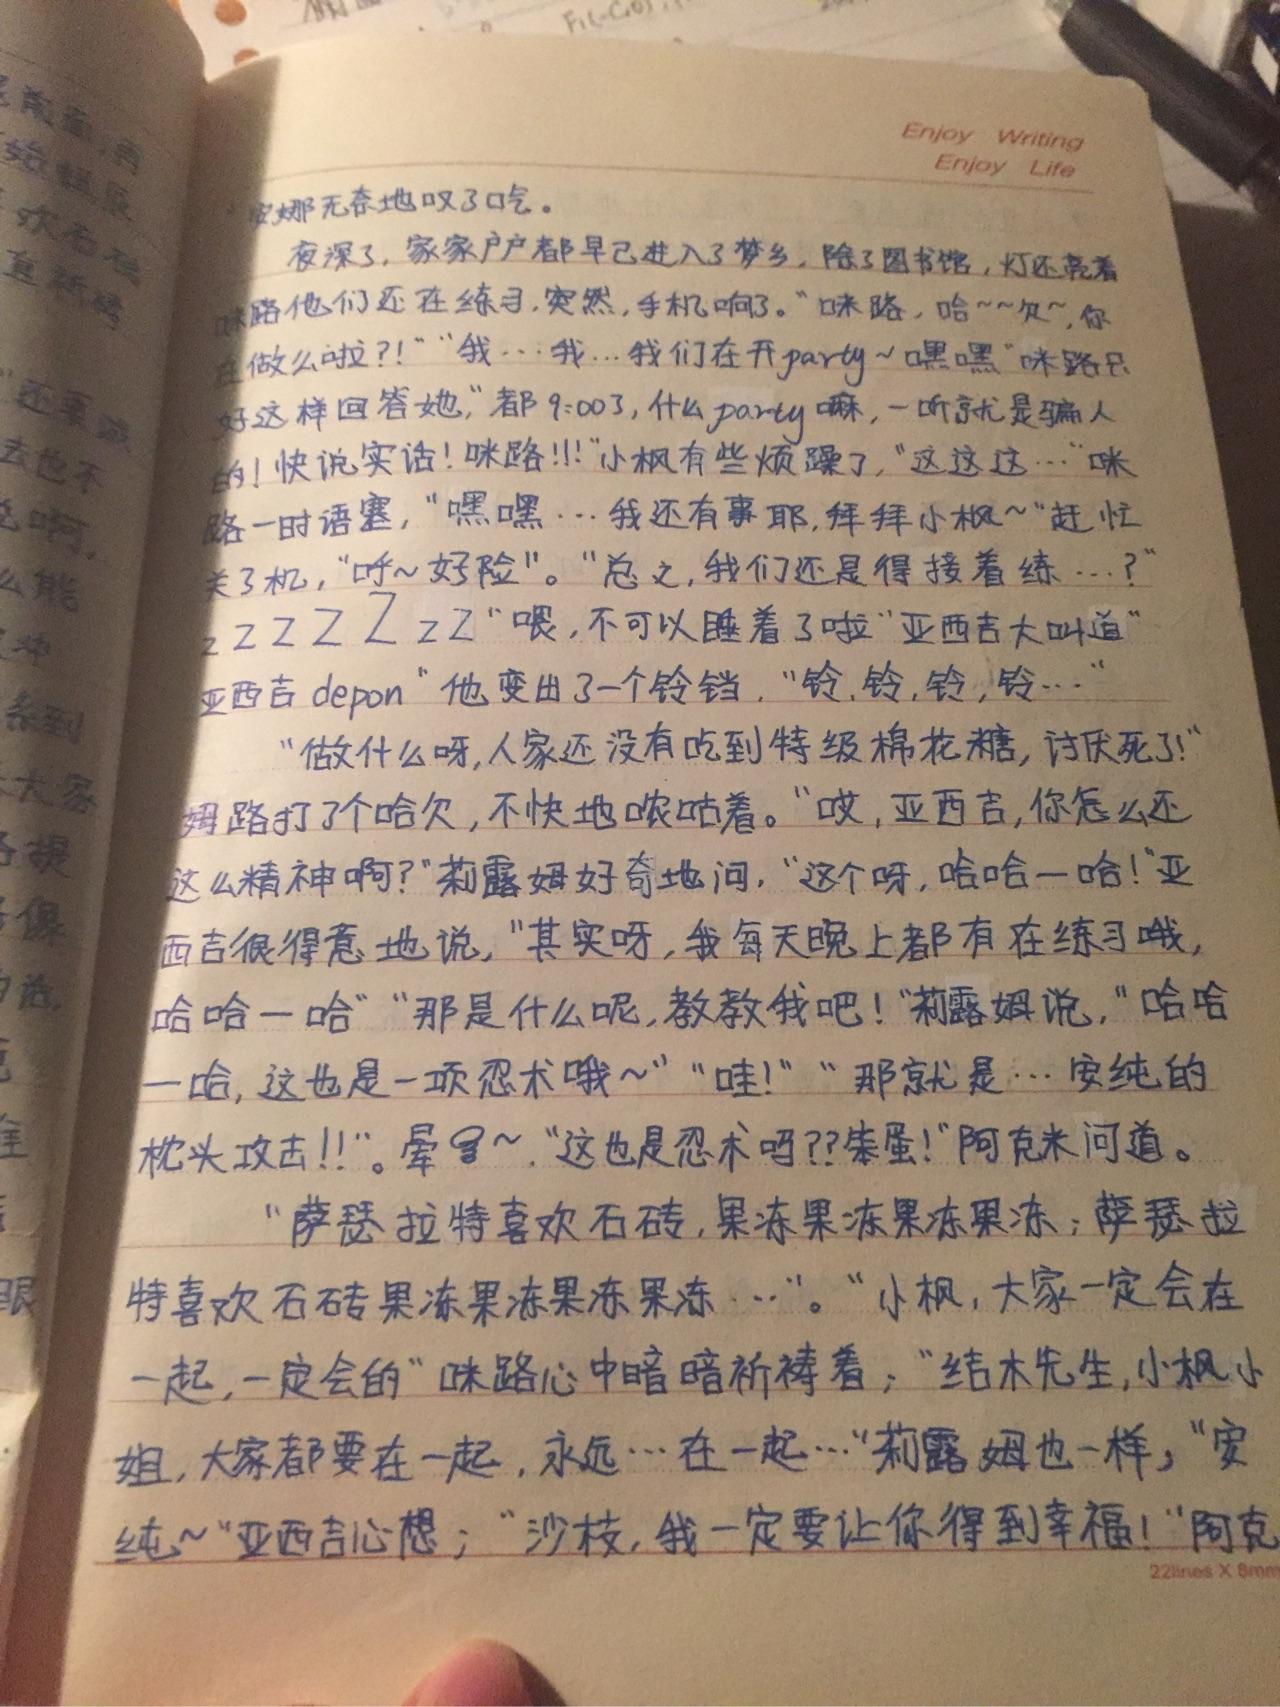 Enjoy Writing
Enjoy Life
安娜无奈地叹了口气。
夜深了，家家户户都早已进入了梦乡，除了图书馆，灯还亮着
咪路他们还在练习，突然，手机响了。“咪路，哈~~欠~，你
在做么啦？！”“我…我…我们在开party~嘿嘿”咪路只
好这样回答她，“都9:00了，什么party嘛，一听就是骗人
的！快说实话！咪路！！！”小枫有些烦躁了，“这这这…”咪
路一时语塞，“嘿嘿…我还有事耶，拜拜小枫~”赶忙
关了机，“呼~好险”。“总之，我们还是得接着练…？”
zzzZZzZ“喂，不可以睡着了啦”亚西吉大叫道“
亚西吉depon”他变出了一个铃铛，“铃，铃，铃，铃…”
“做什么呀，人家还没有吃到特级棉花糖，讨厌死了！”
姆路打了个哈欠，不快地哝咕着。“哎，亚西吉，你怎么还
这么精神啊？”莉露姆好奇地问，“这个呀，哈哈一哈！”亚
西吉很得意地说，“其实呀，我每天晚上都有在练习哦，
哈哈一哈”“那是什么呢，教教我吧！”莉露姆说，“哈哈
一哈，这也是一项忍术哦~”“哇！”“那就是…安纯的
枕头攻击！！”。晕~，“这也是忍术吗？？笨蛋！”阿克米问道。
“萨瑟拉特喜欢石砖，果冻果冻果冻果冻；萨瑟拉
特喜欢石砖果冻果冻果冻果冻…”。“小枫，大家一定会在
一起，一定会的”咪路心中暗暗祈祷着；“结木先生，小枫小
姐，大家都要在一起，永远…在一起…”莉露姆也一样；“安
纯~”亚西吉心想；“沙枝，我一定要让你得到幸福！”阿克
22lines X 8mm